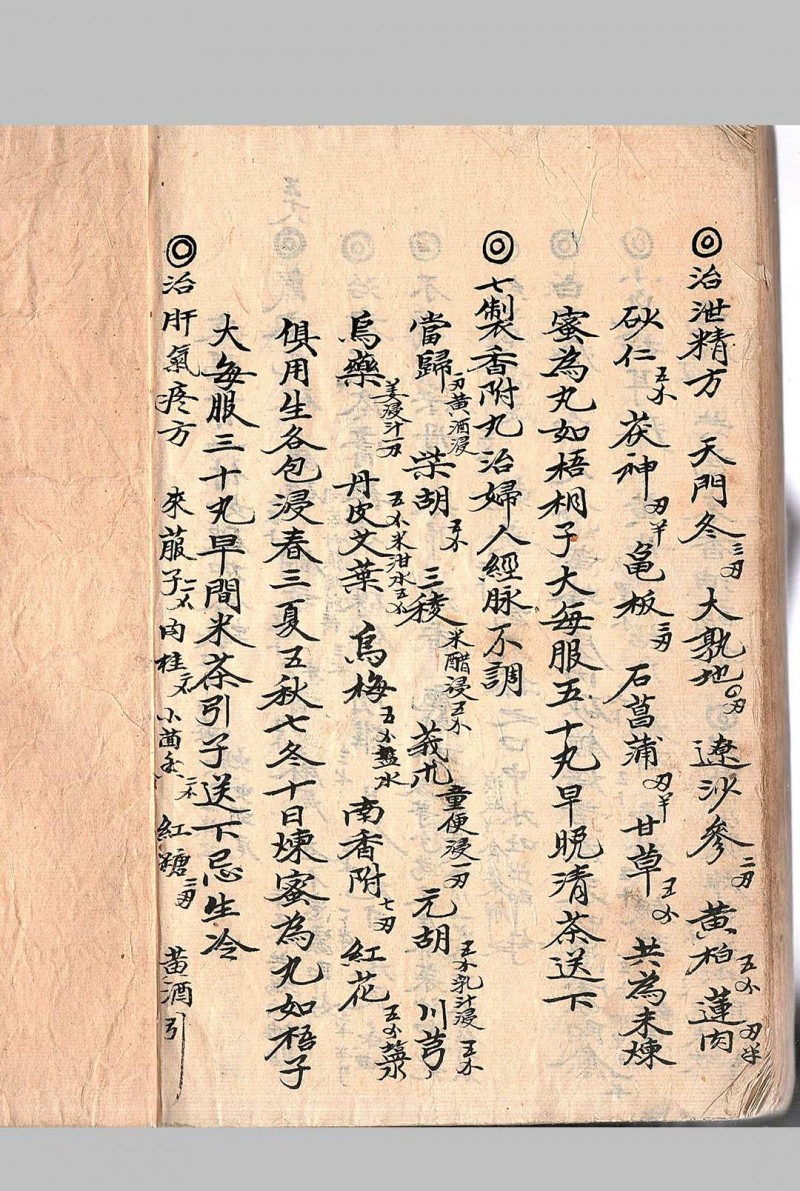 ◎治泄精方 天門冬三刄 大熟地 遼沙參二刄 黃柏五分 蓮肉刄半
砂仁五分 茯神刄半 亀板 石菖蒲刄半 甘草五分 共為末煉
蜜為丸如梧桐子大每服五十丸早晚清茶送下
◎七製香附丸治婦人經脉不調
當歸一刄黃酒浸 柴胡五分 三稜米醋浸五分 莪朮童便浸一刄 元胡五分乳汁浸 川芎五分
烏藥姜浸汁一刄 丹皮艾葉五分米泔水五分 烏梅五分盐水 南香附七刄 紅花五分
俱用生各包浸春三夏五秋七冬十日煉蜜為丸如梧子
大每服三十丸早間米茶引子送下忌生冷
◎治肝氣疼方 來菔子 肉桂 小茴香 紅糖 黃酒引